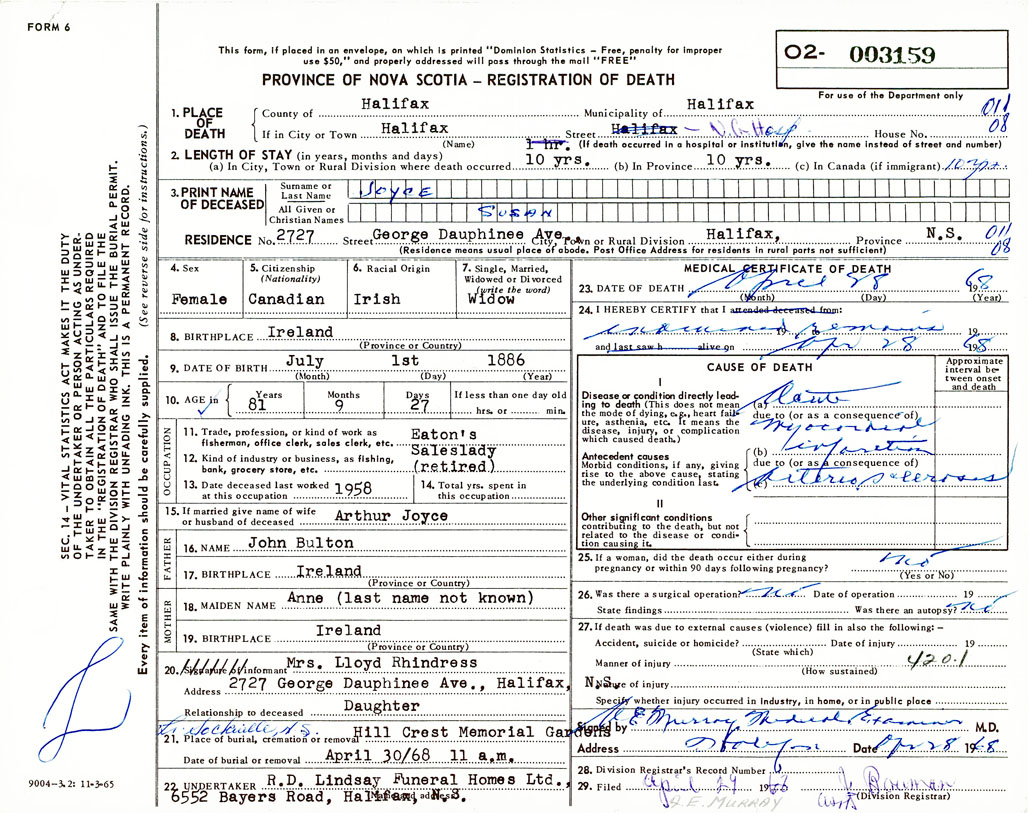 FORM 6
This form, if placed in an envelope, on which is printed "Dominion Statistics – Free, penalty for improper
use $50," and properly addressed will pass through the mail "FREE"
O2- 003159
PROVINCE OF NOVA SCOTIA – REGISTRATION OF DEATH
For use of the Department only
1. PLACE OF DEATH
County of Halifax Municipality of Halifax 011
If in City or Town Halifax Street Halifax – V.G. Hosp House No. 08
(Name) 1 hr. (If death occurred in a hospital or institution, give the name instead of street and number)
2. LENGTH OF STAY (in years, months and days)
(a) In City, Town or Rural Division where death occurred 10 yrs. (b) In Province 10 yrs. (c) In Canada (if immigrant) 10 yrs.
3. PRINT NAME OF DECEASED
Surname or Last Name JOYCE
All Given or Christian Names SUSAN
RESIDENCE No. 2727 Street George Dauphinee Ave., City, Town or Rural Division Halifax, Province N.S. 011
(Residence means usual place of abode. Post Office Address for residents in rural parts not sufficient) 08
4. Sex
Female
5. Citizenship
(Nationality)
Canadian
6. Racial Origin
Irish
7. Single, Married,
Widowed or Divorced
(write the word)
Widow
8. BIRTHPLACE Ireland
(Province or Country)
9. DATE OF BIRTH July 1st 1886
(Month) (Day) (Year)
10. AGE in Years 81 Months 9 Days 27 If less than one day old
hrs. or min.
OCCUPATION
11. Trade, profession, or kind of work as
fisherman, office clerk, sales clerk, etc. Eaton's
12. Kind of industry or business, as fishing,
bank, grocery store, etc. Saleslady
(retired)
13. Date deceased last worked
at this occupation 1958
14. Total yrs. spent in
this occupation
15. If married give name of wife
or husband of deceased Arthur Joyce
FATHER
16. NAME John Bulton
17. BIRTHPLACE Ireland
(Province or Country)
MOTHER
18. MAIDEN NAME Anne (last name not known)
19. BIRTHPLACE Ireland
(Province or Country)
20. Signature of informant Mrs. Lloyd Rhindress
Address 2727 George Dauphinee Ave., Halifax, N.S.
Relationship to deceased Daughter
Sackville, N.S.
21. Place of burial, cremation or removal Hill Crest Memorial Gardens
Date of burial or removal April 30/68 11 a.m.
22. UNDERTAKER R.D. Lindsay Funeral Homes Ltd.,
6552 Bayers Road, Halifax, N.S.
MEDICAL CERTIFICATE OF DEATH
23. DATE OF DEATH April 28 1968
(Month) (Day) (Year)
24. I HEREBY CERTIFY that I attended deceased from:
examined 19 remains 19
and last saw h alive on Apr 28 1968
CAUSE OF DEATH
Approximate
interval be-
tween onset
and death
I
Disease or condition directly lead-
ing to death (This does not mean
the mode of dying, e.g., heart fail-
ure, asthenia, etc. It means the
disease, injury, or complication
which caused death.)
(a) Acute
due to (or as a consequence of)
myocardial
Antecedent causes
Morbid conditions, if any, giving
rise to the above cause, stating
the underlying condition last.
(b) infarction
due to (or as a consequence of)
(c) Arteriosclerosis
II
Other significant conditions
contributing to the death, but not
related to the disease or condi-
tion causing it.
25. If a woman, did the death occur either during
pregnancy or within 90 days following pregnancy? No
(Yes or No)
26. Was there a surgical operation? No Date of operation 19
State findings Was there an autopsy? No
27. If death was due to external causes (violence) fill in also the following: –
Accident, suicide or homicide? Date of injury 19
(State which)
Manner of injury 420.1
(How sustained)
Nature of injury
Specify whether injury occurred in Industry, in home, or in public place
Signed by E Murray Medical Examiner M.D.
Address Halifax Date Apr 28 1968
28. Division Registrar's Record Number
29. Filed April 29 1968 Bowman
(Division Registrar)
E. MURRAY Asst
SEC. 14 – VITAL STATISTICS ACT MAKES IT THE DUTY
OF THE UNDERTAKER OR PERSON ACTING AS UNDER-
TAKER TO OBTAIN ALL THE PARTICULARS REQUIRED
IN THE "REGISTRATION OF DEATH" AND TO FILE THE
SAME WITH THE DIVISION REGISTRAR WHO SHALL ISSUE THE BURIAL PERMIT.
WRITE PLAINLY WITH UNFADING INK. THIS IS A PERMANENT RECORD.
Every item of information should be carefully supplied. (See reverse side for instructions.)
9004–3.2: 11-3-65